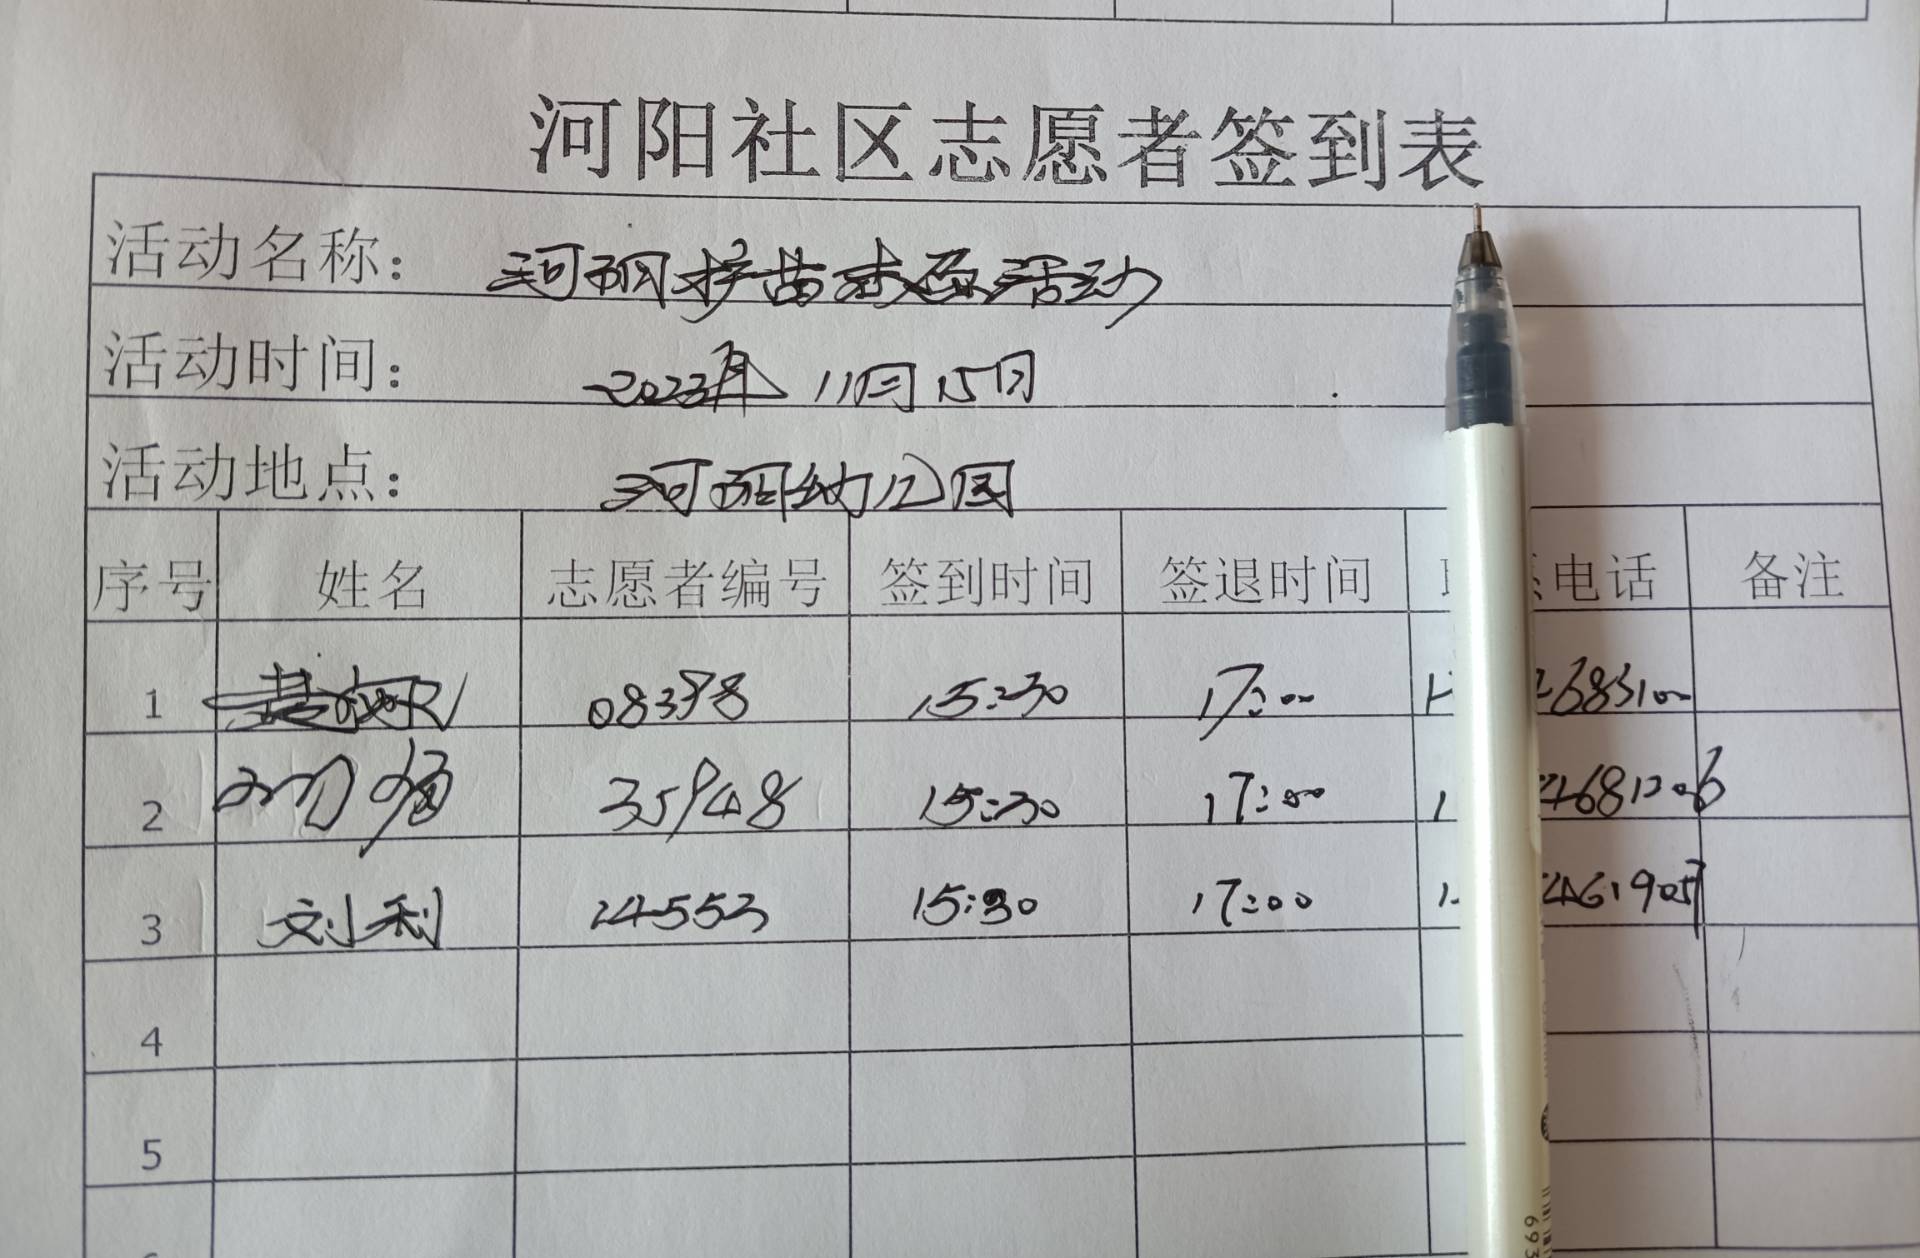 河阳社区志愿者签到表
活动名称: 河阳护苗志愿活动
活动时间: 2023年11月15日
活动地点: 河阳幼儿园
序号 姓名 志愿者编号 签到时间 签退时间 电话 备注
1 08398 15:30 17:00 2683100
2 35948 15:30 17:00 4681206
3 刘利 24553 15:30 17:00
4
5